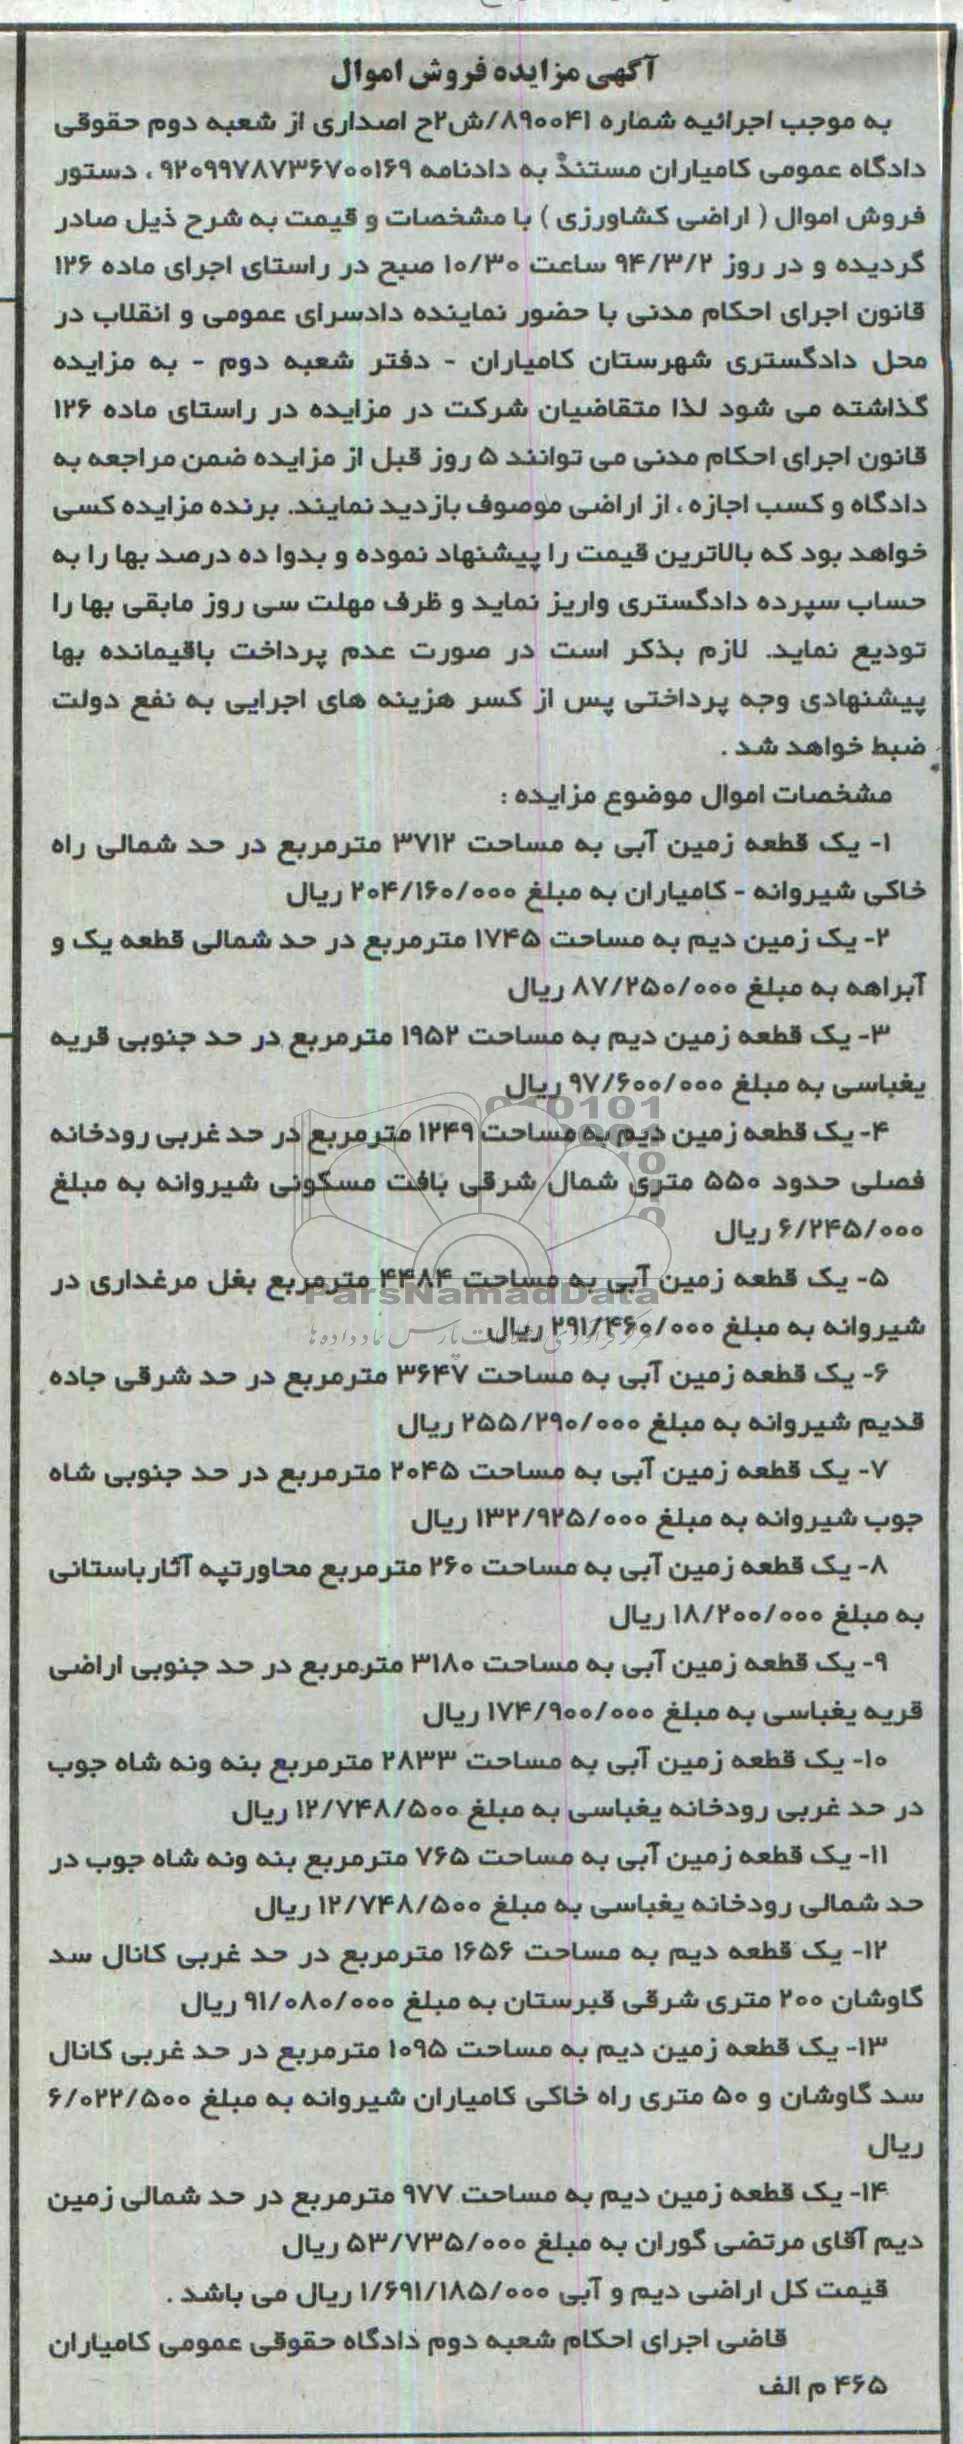 آگهی مزایده فروش اموال
به موجب اجرائیه شماره ۸۹۰۰۴۱/ش۲ح اصداری از شعبه دوم حقوقی
دادگاه عمومی کامیاران مستند به دادنامه ۹۲۰۹۹۷۸۷۳۶۷۰۰۱۶۹ ، دستور
فروش اموال ( اراضی کشاورزی ) با مشخصات و قیمت به شرح ذیل صادر
گردیده و در روز ۹۴/۳/۲ ساعت ۱۰/۳۰ صبح در راستای اجرای ماده ۱۲۶
قانون اجرای احکام مدنی با حضور نماینده دادسرای عمومی و انقلاب در
محل دادگستری شهرستان کامیاران - دفتر شعبه دوم - به مزایده
گذاشته می شود لذا متقاضیان شرکت در مزایده در راستای ماده ۱۲۶
قانون اجرای احکام مدنی می توانند ۵ روز قبل از مزایده ضمن مراجعه به
دادگاه و کسب اجازه ، از اراضی موصوف بازدید نمایند. برنده مزایده کسی
خواهد بود که بالاترین قیمت را پیشنهاد نموده و بدوا ده درصد بها را به
حساب سپرده دادگستری واریز نماید و ظرف مهلت سی روز مابقی بها را
تودیع نماید. لازم بذکر است در صورت عدم پرداخت باقیمانده بها
پیشنهادی وجه پرداختی پس از کسر هزینه های اجرایی به نفع دولت
ضبط خواهد شد .
مشخصات اموال موضوع مزایده :
۱- یک قطعه زمین آبی به مساحت ۳۷۱۲ مترمربع در حد شمالی راه
خاکی شیروانه - کامیاران به مبلغ ۲۰۴/۱۶۰/۰۰۰ ریال
۲- یک زمین دیم به مساحت ۱۷۴۵ مترمربع در حد شمالی قطعه یک و
آبراهه به مبلغ ۸۷/۲۵۰/۰۰۰ ریال
۳- یک قطعه زمین دیم به مساحت ۱۹۵۲ مترمربع در حد جنوبی قریه
یغباسی به مبلغ ۹۷/۶۰۰/۰۰۰ ریال
۴- یک قطعه زمین دیم به مساحت ۱۲۴۹ مترمربع در حد غربی رودخانه
فصلی حدود ۵۵۰ متری شمال شرقی بافت مسکونی شیروانه به مبلغ
۶/۲۴۵/۰۰۰ ریال
۵- یک قطعه زمین آبی به مساحت ۴۴۸۴ مترمربع بغل مرغداری در
ParsNamadData
شیروانه به مبلغ ۲۹۱/۴۶۰/۰۰۰ ریال
۶- یک قطعه زمین آبی به مساحت ۳۶۴۷ مترمربع در حد شرقی جاده
قدیم شیروانه به مبلغ ۲۵۵/۲۹۰/۰۰۰ ریال
۷- یک قطعه زمین آبی به مساحت ۲۰۴۵ مترمربع در حد جنوبی شاه
جوب شیروانه به مبلغ ۱۳۲/۹۲۵/۰۰۰ ریال
۸- یک قطعه زمین آبی به مساحت ۲۶۰ مترمربع محاورتپه آثارباستانی
به مبلغ ۱۸/۲۰۰/۰۰۰ ریال
۹- یک قطعه زمین آبی به مساحت ۳۱۸۰ مترمربع در حد جنوبی اراضی
قریه یغباسی به مبلغ ۱۷۴/۹۰۰/۰۰۰ ریال
۱۰- یک قطعه زمین آبی به مساحت ۲۸۳۳ مترمربع بنه ونه شاه جوب
در حد غربی رودخانه یغباسی به مبلغ ۱۲/۷۴۸/۵۰۰ ریال
۱۱- یک قطعه زمین آبی به مساحت ۷۶۵ مترمربع بنه ونه شاه جوب در
حد شمالی رودخانه یغباسی به مبلغ ۱۲/۷۴۸/۵۰۰ ریال
۱۲- یک قطعه دیم به مساحت ۱۶۵۶ مترمربع در حد غربی کانال سد
گاوشان ۲۰۰ متری شرقی قبرستان به مبلغ ۹۱/۰۸۰/۰۰۰ ریال
۱۳- یک قطعه زمین دیم به مساحت ۱۰۹۵ مترمربع در حد غربی کانال
سد گاوشان و ۵۰ متری راه خاکی کامیاران شیروانه به مبلغ ۶/۰۲۲/۵۰۰
ریال
۱۴- یک قطعه زمین دیم به مساحت ۹۷۷ مترمربع در حد شمالی زمین
دیم آقای مرتضی گوران به مبلغ ۵۳/۷۳۵/۰۰۰ ریال
قیمت کل اراضی دیم و آبی ۱/۶۹۱/۱۸۵/۰۰۰ ریال می باشد .
قاضی اجرای احکام شعبه دوم دادگاه حقوقی عمومی کامیاران
۴۶۵ م الف